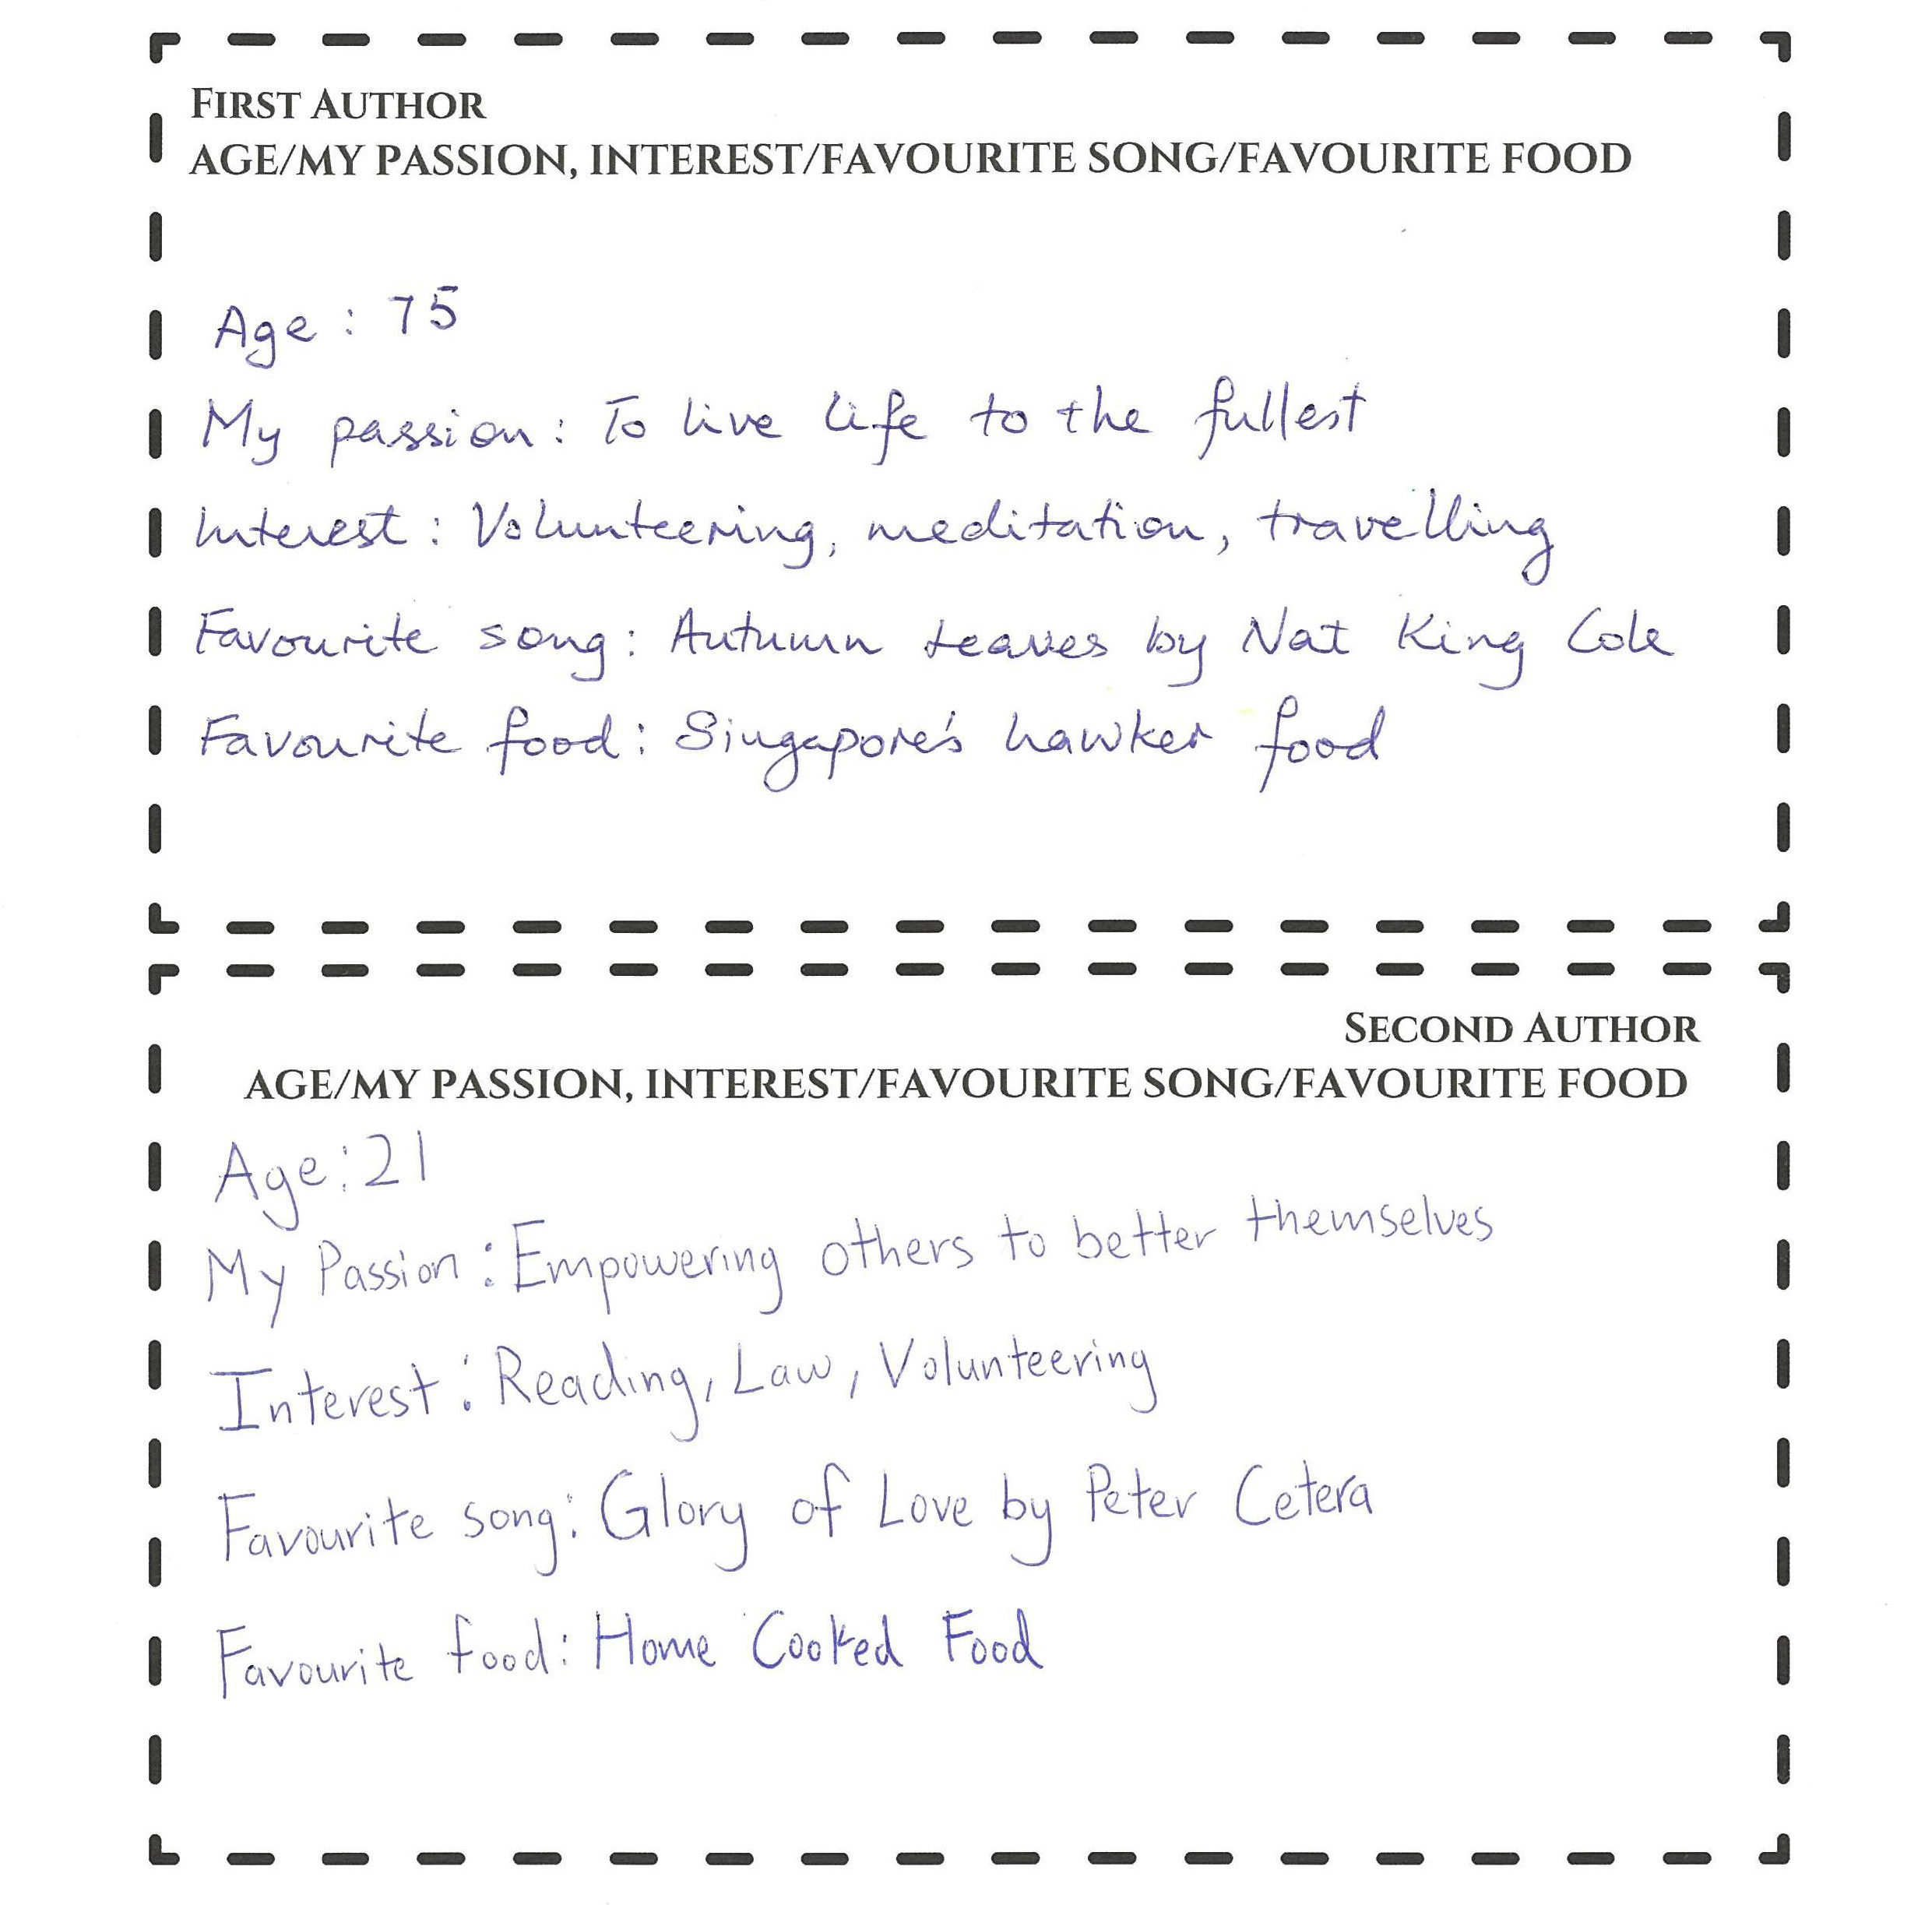 FIRST AUTHOR
AGE/MY PASSION, INTEREST/FAVOURITE SONG/FAVOURITE FOOD
Age : 75
My passion : To live life to the fullest
Interest : Volunteering, meditation, travelling
Favourite song : Autumn Leaves by Nat King Cole
Favourite food : Singapore's hawker food
SECOND AUTHOR
AGE/MY PASSION, INTEREST/FAVOURITE SONG/FAVOURITE FOOD
Age : 21
My Passion : Empowering others to better themselves
Interest : Reading, Law, Volunteering
Favourite song : Glory of Love by Peter Cetera
Favourite food : Home Cooked Food